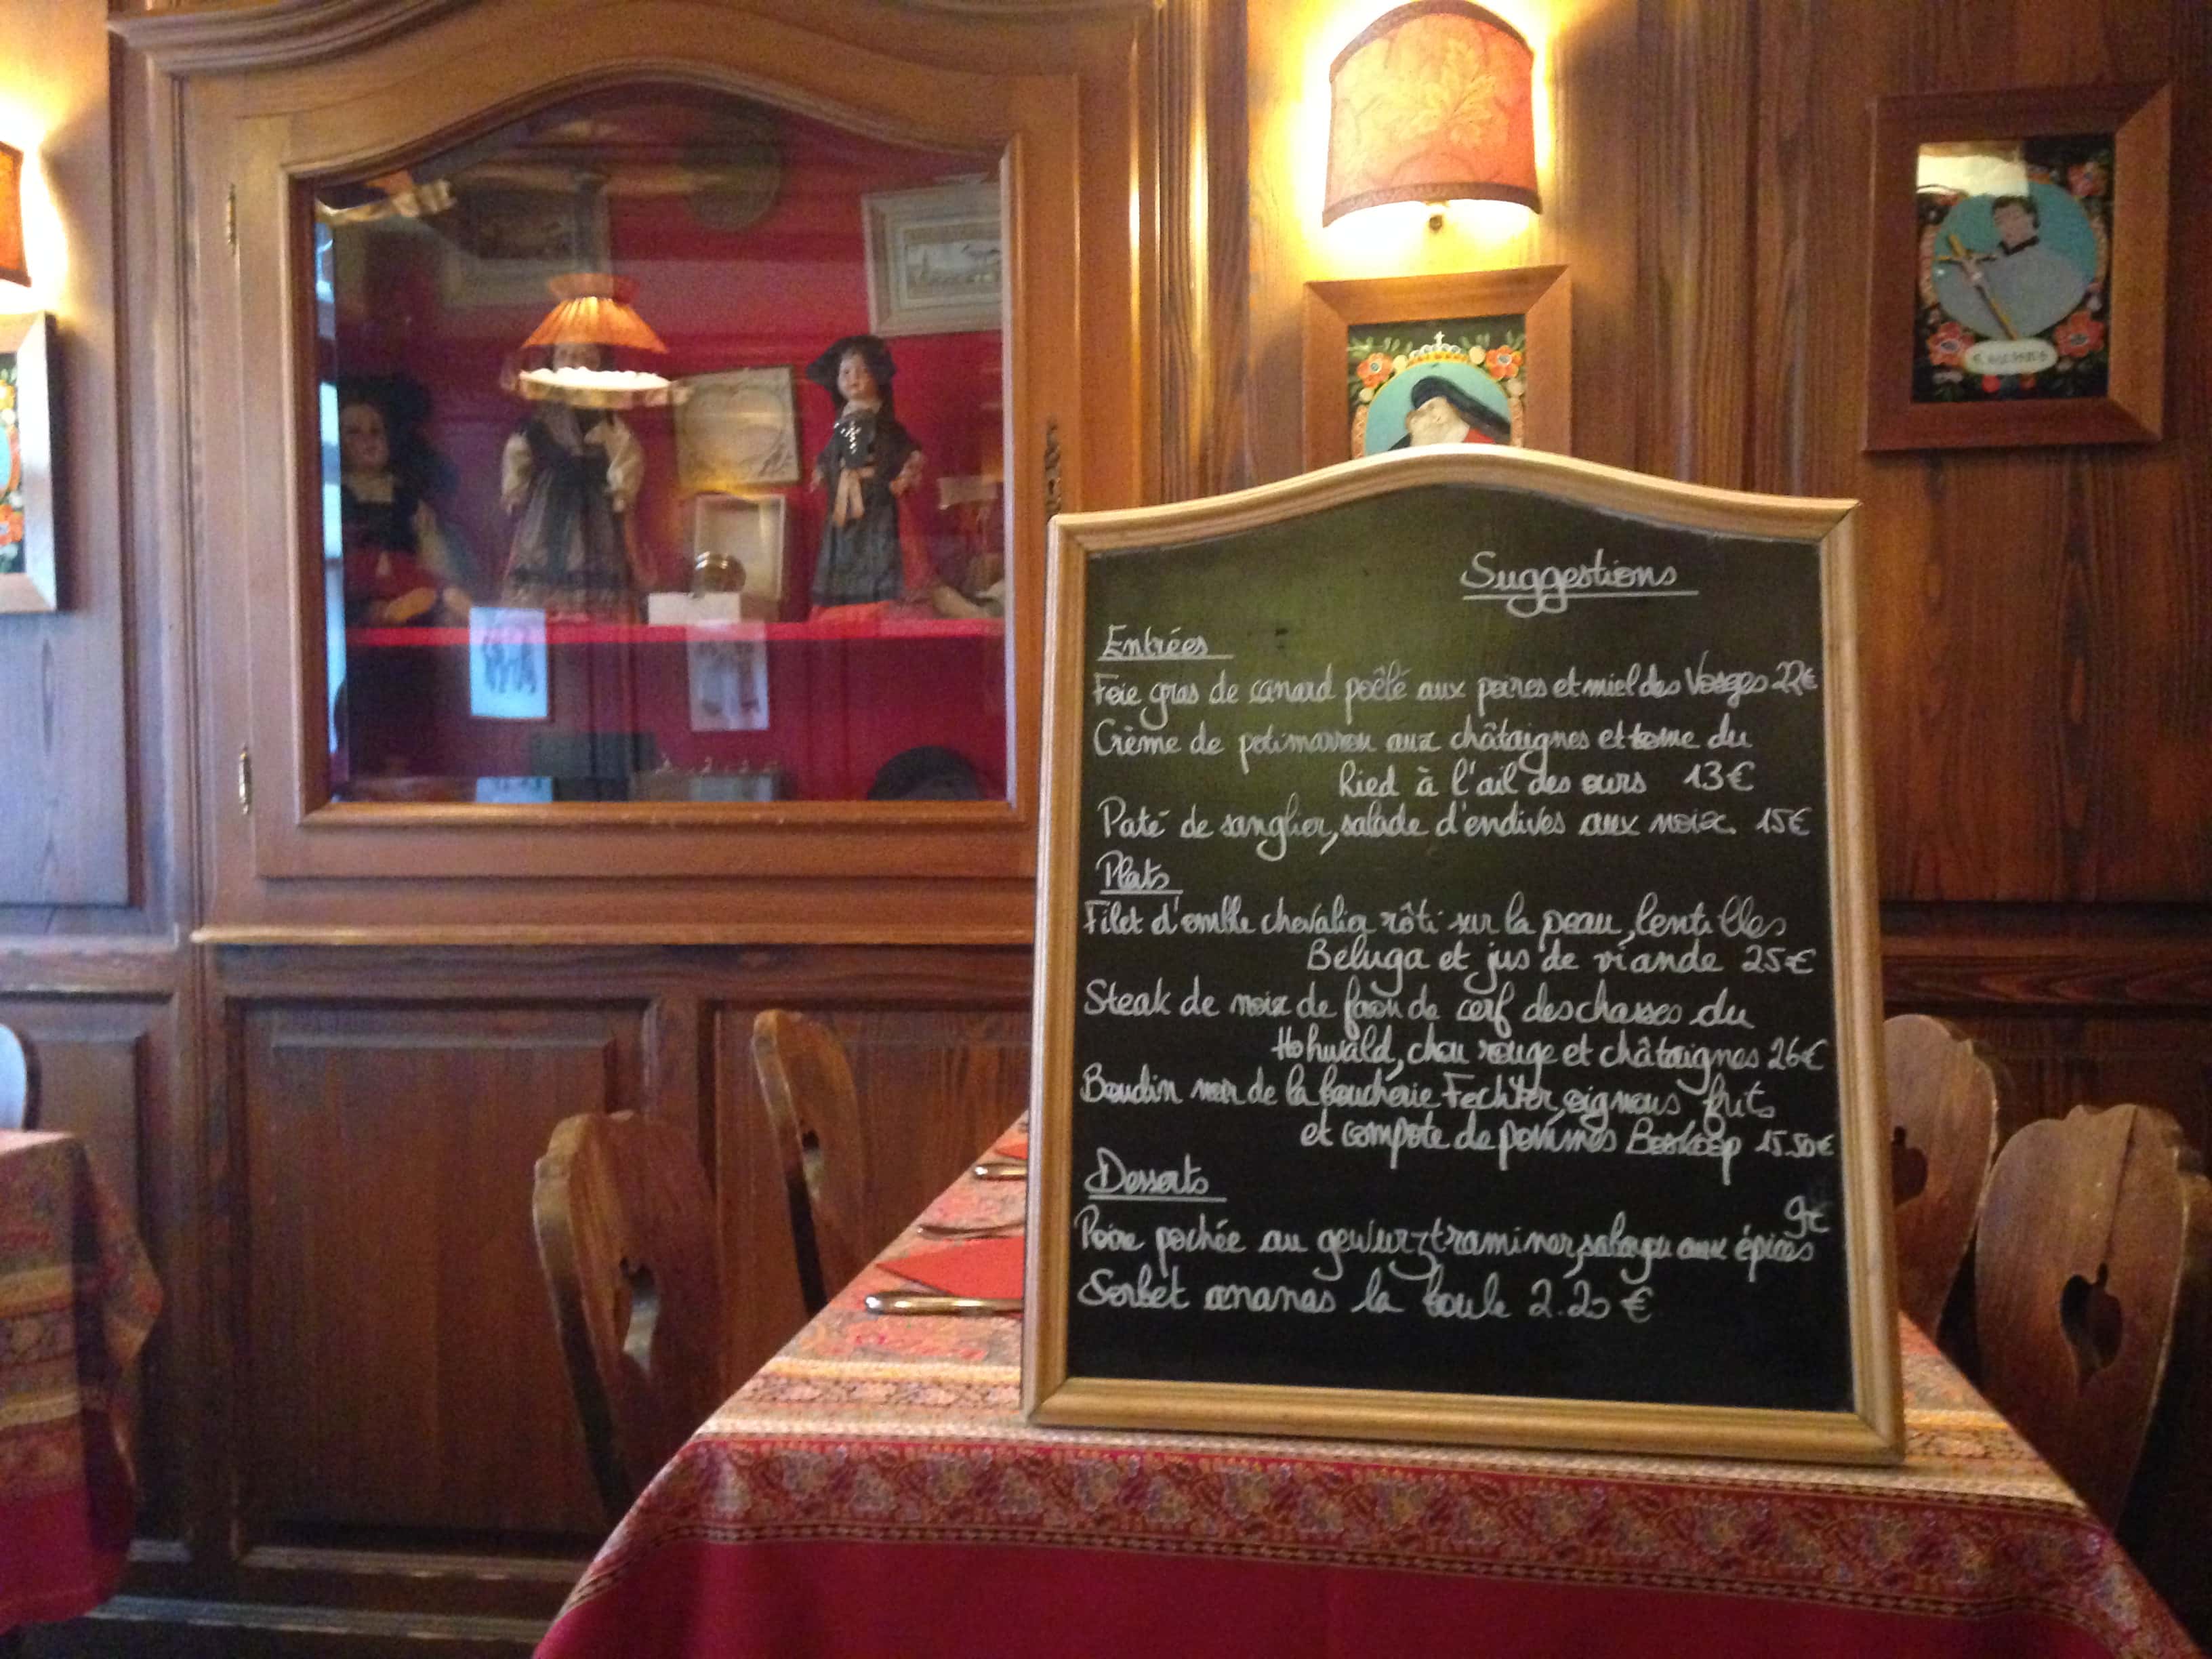 Suggestions
Entrées
Foie gras de canard poêlé aux poires et miel des Vosges 22€
Crème de potimarron aux châtaignes et tome du
Ried à l'ail des ours 13€
Paté de sanglier, salade d'endives aux noix 15€
Plats
Filet d'omble chevalier rôti sur la peau, lentilles
Beluga et jus de viande 25€
Steak de noix de faon de cerf des chasses du
Hohwald, chou rouge et châtaignes 26€
Boudin noir de la boucherie Fechter, oignons frits
et compote de pommes Boskoop 15.50€
Desserts
9€
Poire pochée au gewurztraminer, sabayon aux épices
Sorbet ananas la boule 2.20 €